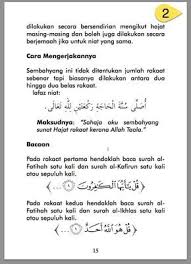 2
dilakukan secara bersendirian mengikut hajat
masing-masing dan boleh juga dilakukan secara
berjemaah jika untuk niat yang sama.
Cara Mengerjakannya
Sembahyang ini tidak ditentukan jumlah rakaat
sebenar tapi biasanya dilakukan antara dua
hingga dua belas rakaat.
lafaz niat:
أُصَلِّي سُنَّةَ الْحَاجَةِ رَكْعَتَيْنِ لِلَّهِ تَعَالَى.
Maksudnya: "Sahaja aku sembahyang
sunat Hajat rakaat kerana Allah Taala."
Bacaan
Pada rakaat pertama hendaklah baca surah al-
Fatihah satu kali dan surah al-Kafirun satu kali
ataupun sepuluh kali.
﴿ قُلْ يَا أَيُّهَا الْكَافِرُونَ ١ ... ﴾
Pada rakaat kedua hendaklah baca surah al-
Fatihah satu kali dan surah al-Ikhlas satu kali
ataupun sebelas kali.
﴿ قُلْ هُوَ اللَّهُ أَحَدٌ ١ ... ﴾
15